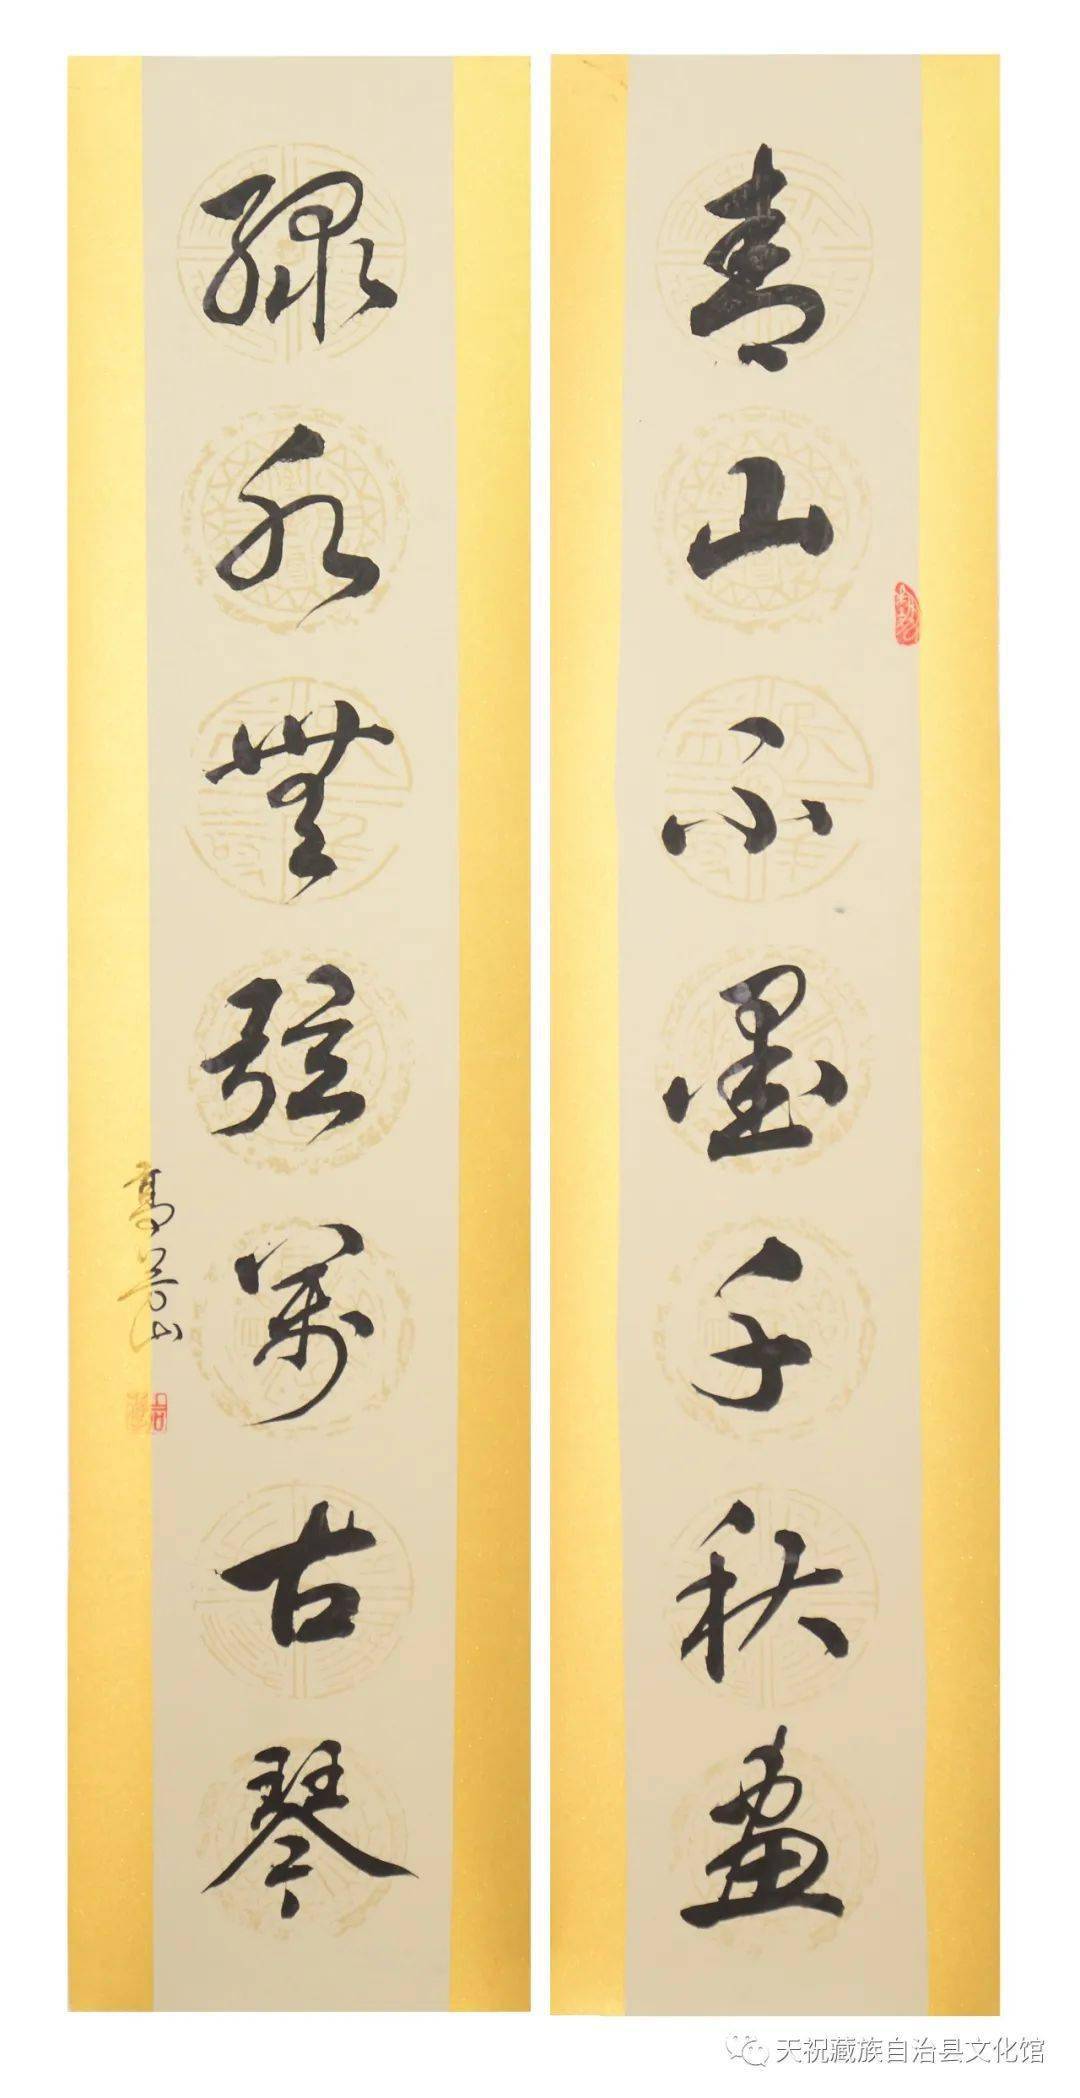 青山不墨千秋画
绿水無弦萬古琴
高善山
天祝藏族自治县文化馆